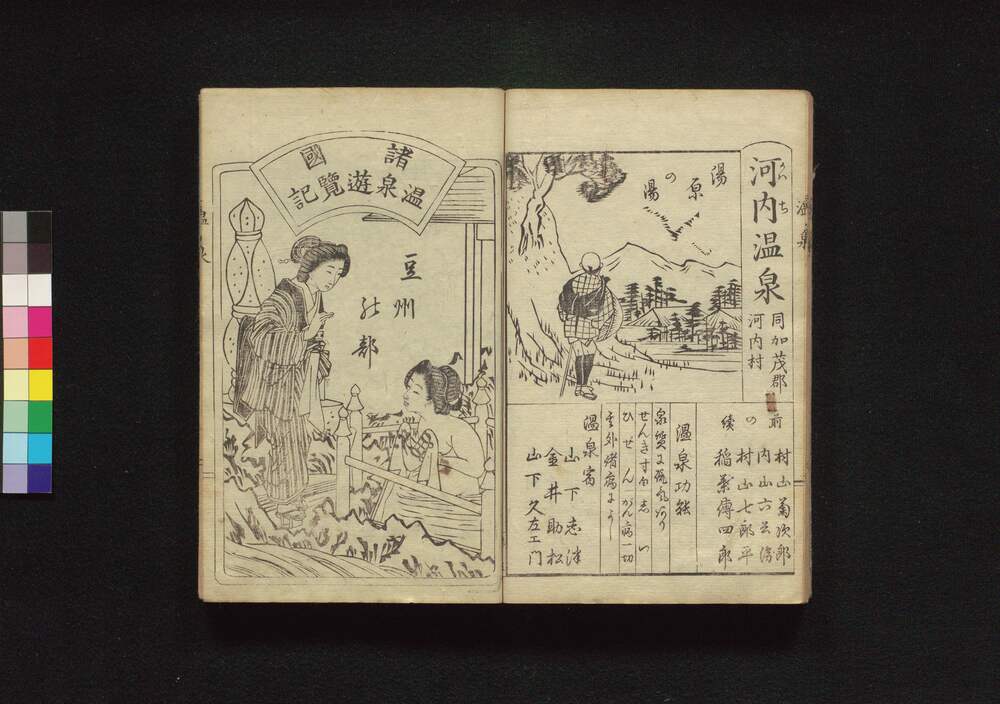 河内温泉
かハち
同加茂郡
河内村
湯原の湯
前の続
村山菊次郎
内山六兵衛
村山七郎平
稲葉傳四郎
温泉功能
せんきすばこしつ
ひぜんがん病一切
其外諸病によし
温泉宿
山下志津
金井助松
山下久左エ門
温泉
諸國
温泉遊覧記
豆州
の部
温泉